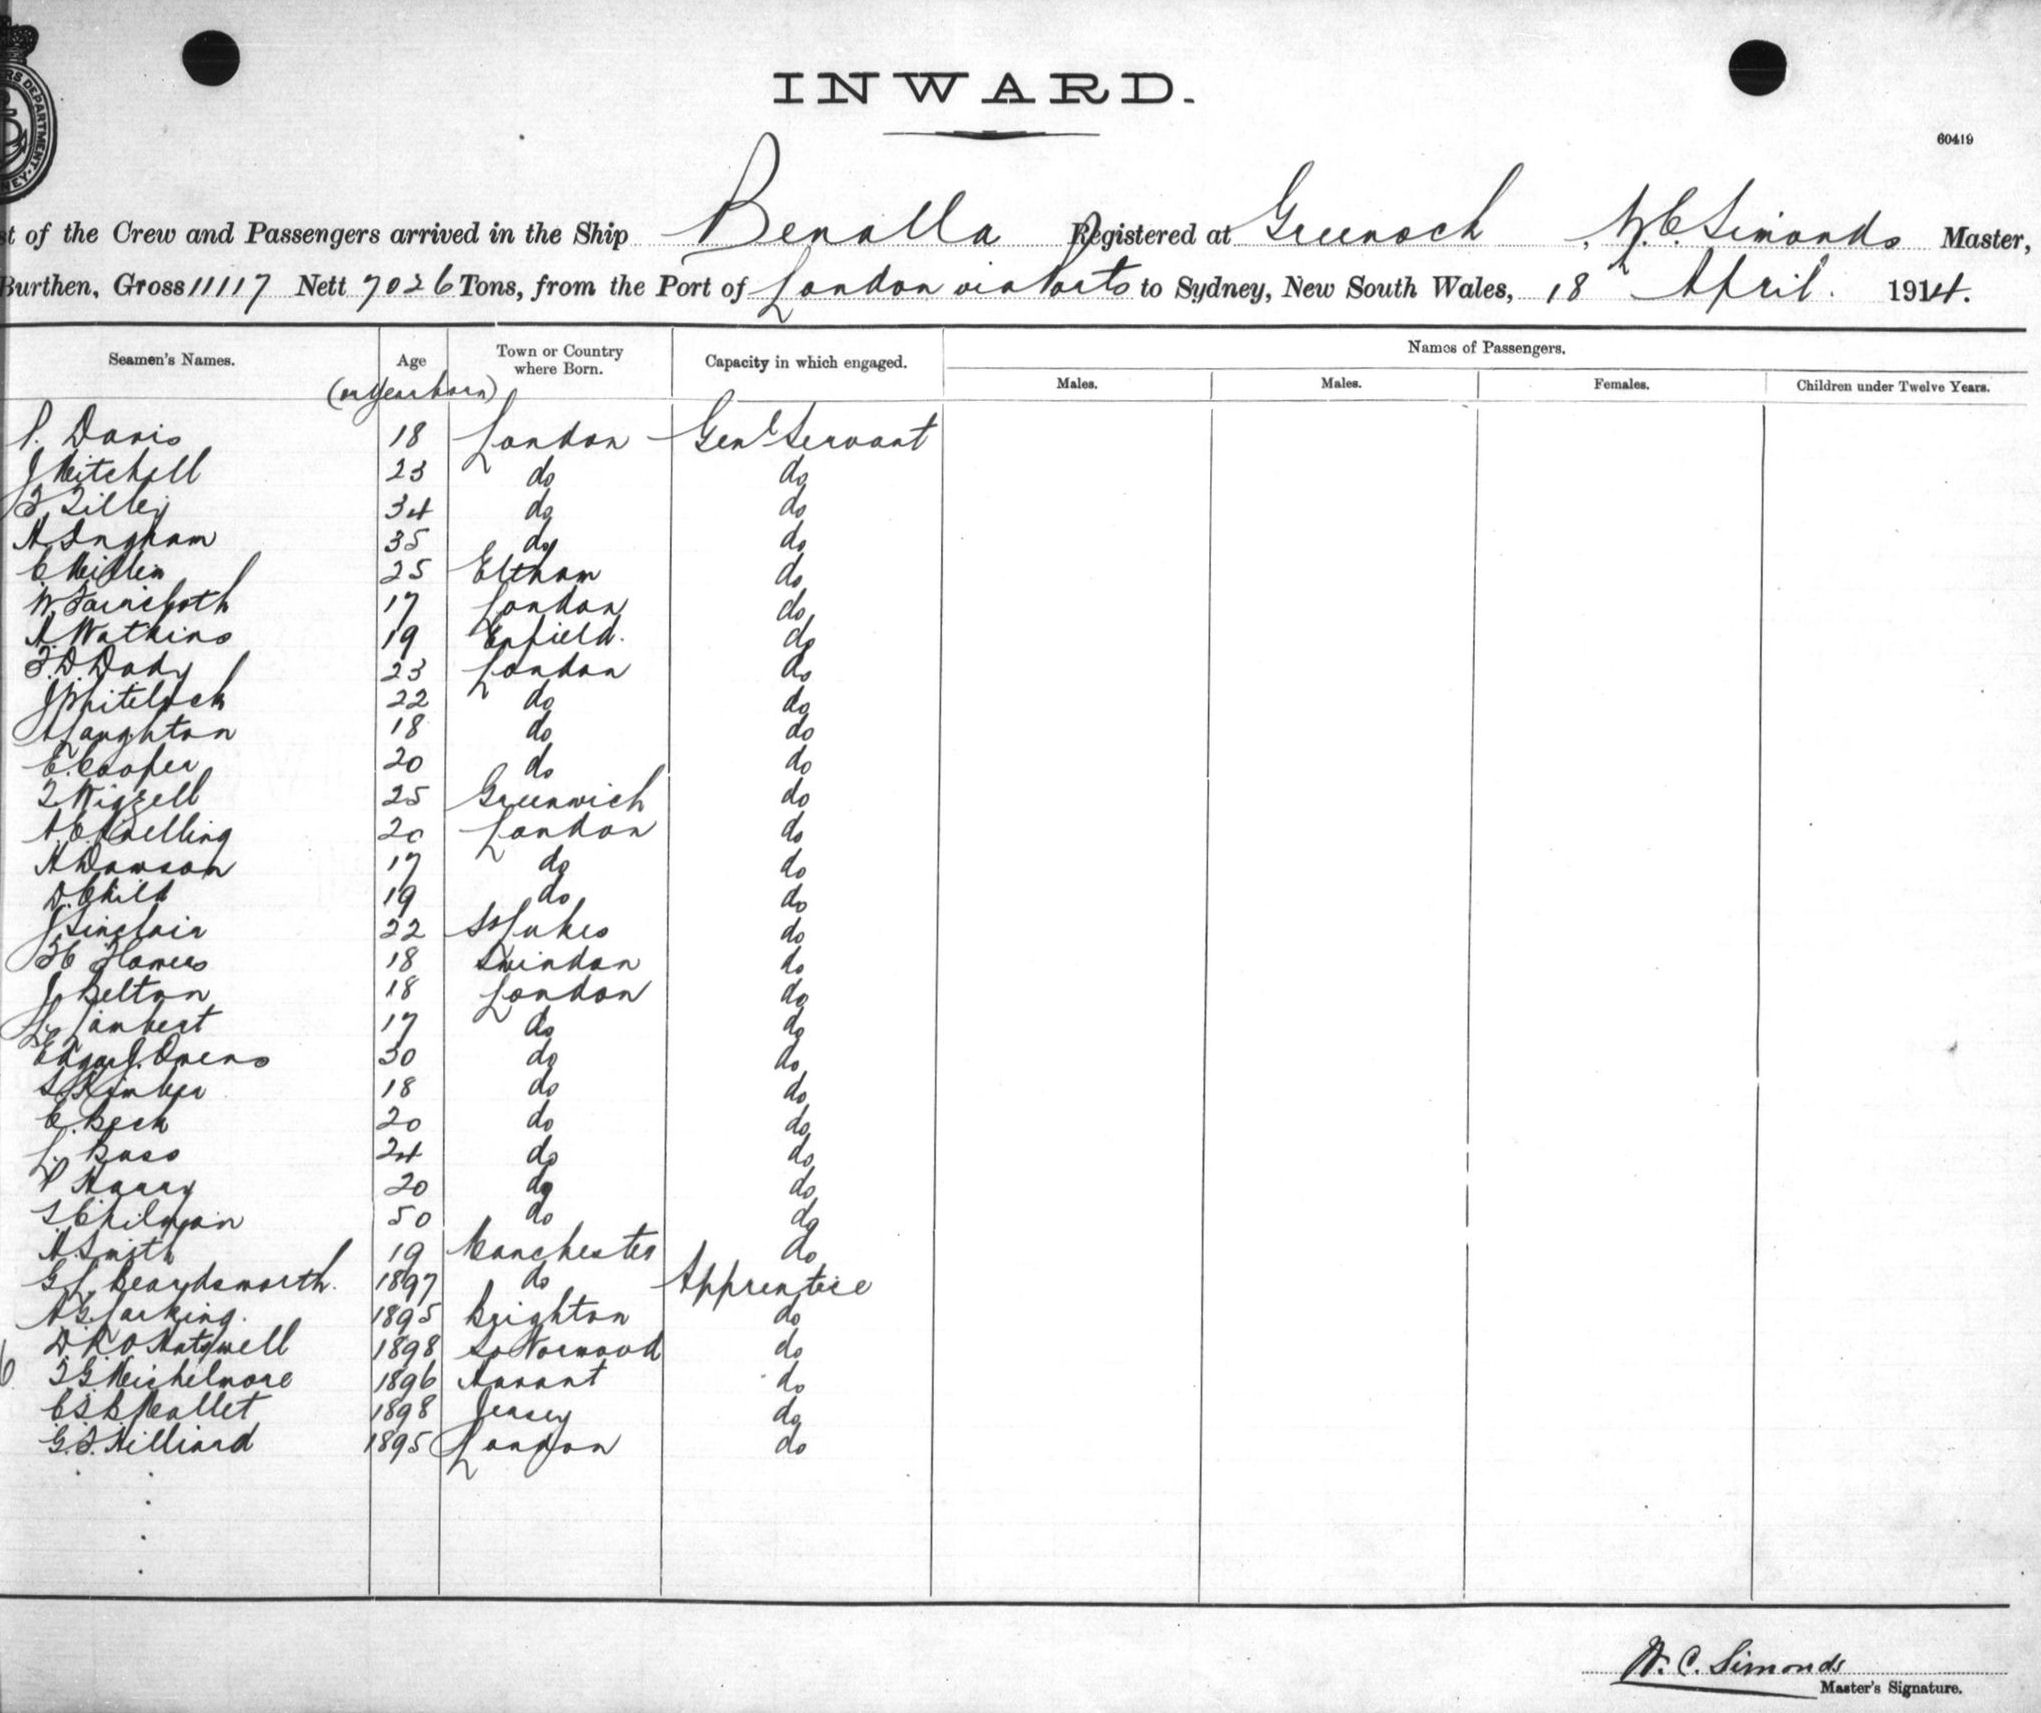 INWARD.
60419
RS DEPARTMENT.
NEY.
st of the Crew and Passengers arrived in the Ship Benalla Registered at Greenock, W.C. Simonds Master,
Burthen, Gross 11117 Nett 7026 Tons, from the Port of London via Ports to Sydney, New South Wales, 18 April. 1914.
Seamen's Names. Age (or Year born) Town or Country where Born. Capacity in which engaged. Names of Passengers.
Males. Males. Females. Children under Twelve Years.
P. Davis 18 London Genl Servant
J Mitchell 23 do do
F. Tilley 34 do do
A. Ingham 35 do do
C 25 Eltham do
W. 17 London do
A. Watkins 19 Enfield. do
F. D. Dady 23 London do
J Whitelock 22 do do
A Laughton 18 do do
E. Cooper 20 do do
T Wiggell 25 Greenwich do
A. C. Snelling 20 London do
A Dawson 17 do do
D. Child 19 do do
J Sinclair 22 St Lukes do
Flowers 18 Swindon do
J. Belton 18 London do
L. Lambert 17 do do
Edgar J. Owens 30 do do
S Kimber 18 do do
C. Beck 20 do do
L. Bass 24 do do
P Harry 20 do do
S. Chilman 50 do do
A. Smith 19 Manchester do
G L Beardsworth. 1897 do Apprentice
A G. Larking. 1895 Brighton do
D. R. O Hatswell 1898 So Norwood do
6 T. G. Michelmore 1896 do
C S B Mallet 1898 Jersey do
G. F. Hilliard 1895 London do
W. C. Simonds
Master's Signature.